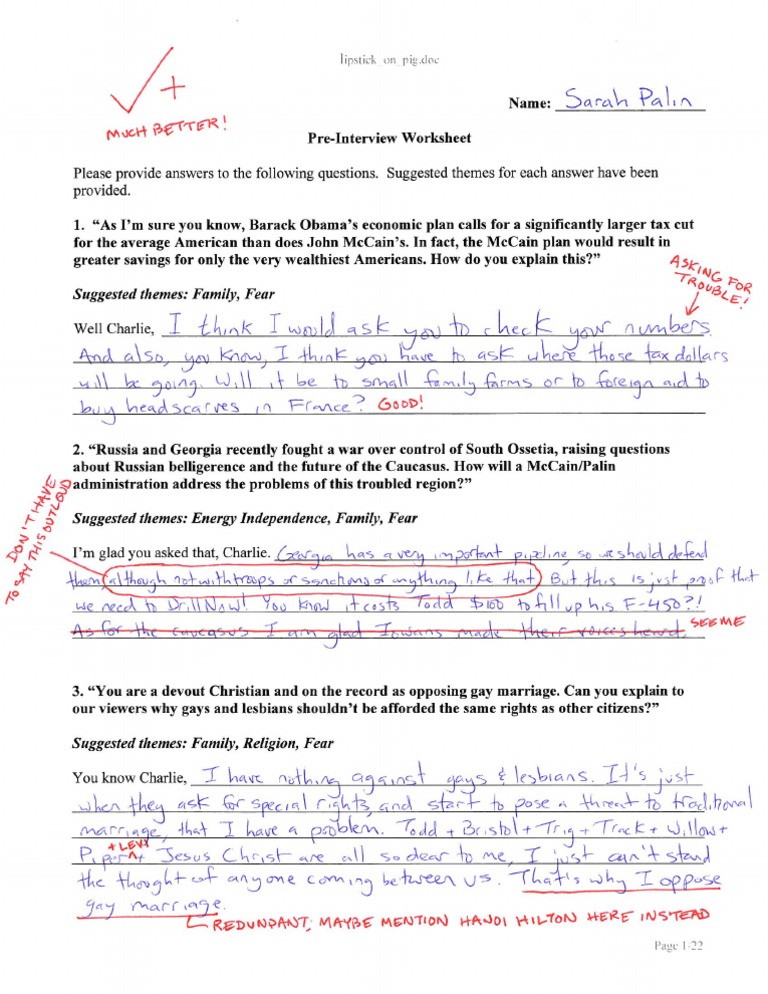 lipstick_on_pig.doc
✓+
MUCH BETTER!
Name: Sarah Palin
Pre-Interview Worksheet
Please provide answers to the following questions. Suggested themes for each answer have been
provided.
1. “As I’m sure you know, Barack Obama’s economic plan calls for a significantly larger tax cut
for the average American than does John McCain’s. In fact, the McCain plan would result in
greater savings for only the very wealthiest Americans. How do you explain this?”
ASKING FOR
TROUBLE!
Suggested themes: Family, Fear
Well Charlie, I think I would ask you to check your numbers.
And also, you know, I think you have to ask where those tax dollars
will be going. Will it be to small family farms or to foreign aid to
buy headscarves in France? GOOD!
2. “Russia and Georgia recently fought a war over control of South Ossetia, raising questions
about Russian belligerence and the future of the Caucasus. How will a McCain/Palin
administration address the problems of this troubled region?”
DON'T HAVE
TO SAY THIS OUTLOUD
Suggested themes: Energy Independence, Family, Fear
I’m glad you asked that, Charlie. Georgia has a very important pipeline, so we should defend
them, although not with troops or sanctions or anything like that. But this is just proof that
we need to Drill Now! You know it costs Todd $100 to fill up his F-450?!
As for the caucasus I am glad Iowans made their voices heard. SEE ME
3. “You are a devout Christian and on the record as opposing gay marriage. Can you explain to
our viewers why gays and lesbians shouldn’t be afforded the same rights as other citizens?”
Suggested themes: Family, Religion, Fear
You know Charlie, I have nothing against gays & lesbians. It's just
when they ask for special rights, and start to pose a threat to traditional
marriage, that I have a problem. Todd + Bristol + Trig + Track + Willow +
+ LEVY
Piper + Jesus Christ are all so dear to me, I just can't stand
the thought of anyone coming between us. That's why I oppose
gay marriage.
REDUNDANT; MAYBE MENTION HANOI HILTON HERE INSTEAD
Page 1-22